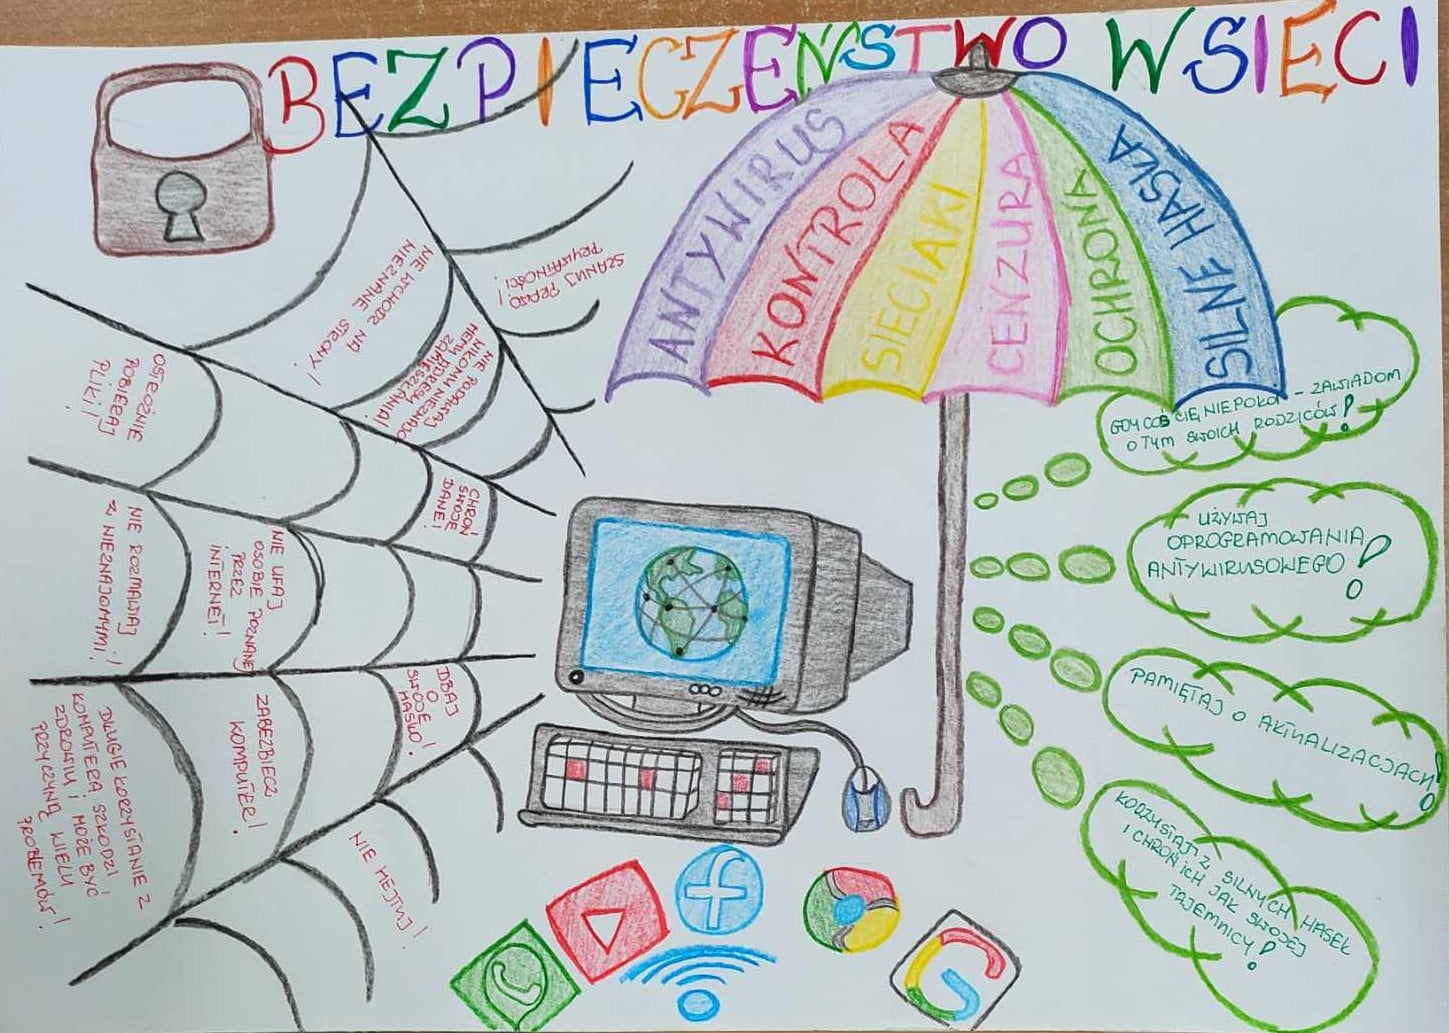 BEZPIECZEŃSTWO W SIECI
ANTYWIRUS
KONTROLA
SIECIAKI
CENZURA
OCHRONA
SILNE HASŁA
SZANUJ PRAWO
PRYWATNOŚCI!
NIE WCHODZ NA
NIEZNANE STRONY!
NIE PODAWAJ
NIKOMU NIEZNAJO
MEMU ADRESU
ZAMIESZKANIA!
OSTROŻNIE
POBIERAJ
PLIKI!
CHROŃ
SWOJE
DANE!
NIE ROZMAWIAJ
Z NIEZNAJOMYMI!
NIE UFAJ
OSOBIE POZNANEJ
PRZEZ
INTERNET!
DBAJ
O
SWOJE
HASŁO!
ZABEZBIECZ
KOMPUTER!
DŁUGIE KORZYSTANIE Z
KOMPUTERA SZKODZI
ZDROWIU I MOŻE BYĆ
PRZYCZYNĄ WIELU
PROBLEMÓW!
NIE HEJTUJ!
GDY COŚ CIĘ NIEPOKOI - ZAWIADOM
O TYM SWOICH RODZICÓW!
UŻYWAJ
OPROGRAMOWANIA
ANTYWIRUSOWEGO!
PAMIĘTAJ O AKTUALIZACJACH!
KORZYSTAJ Z SILNYCH HASEŁ
I CHROŃ ICH JAK SWOJEJ
TAJEMNICY!
f
G